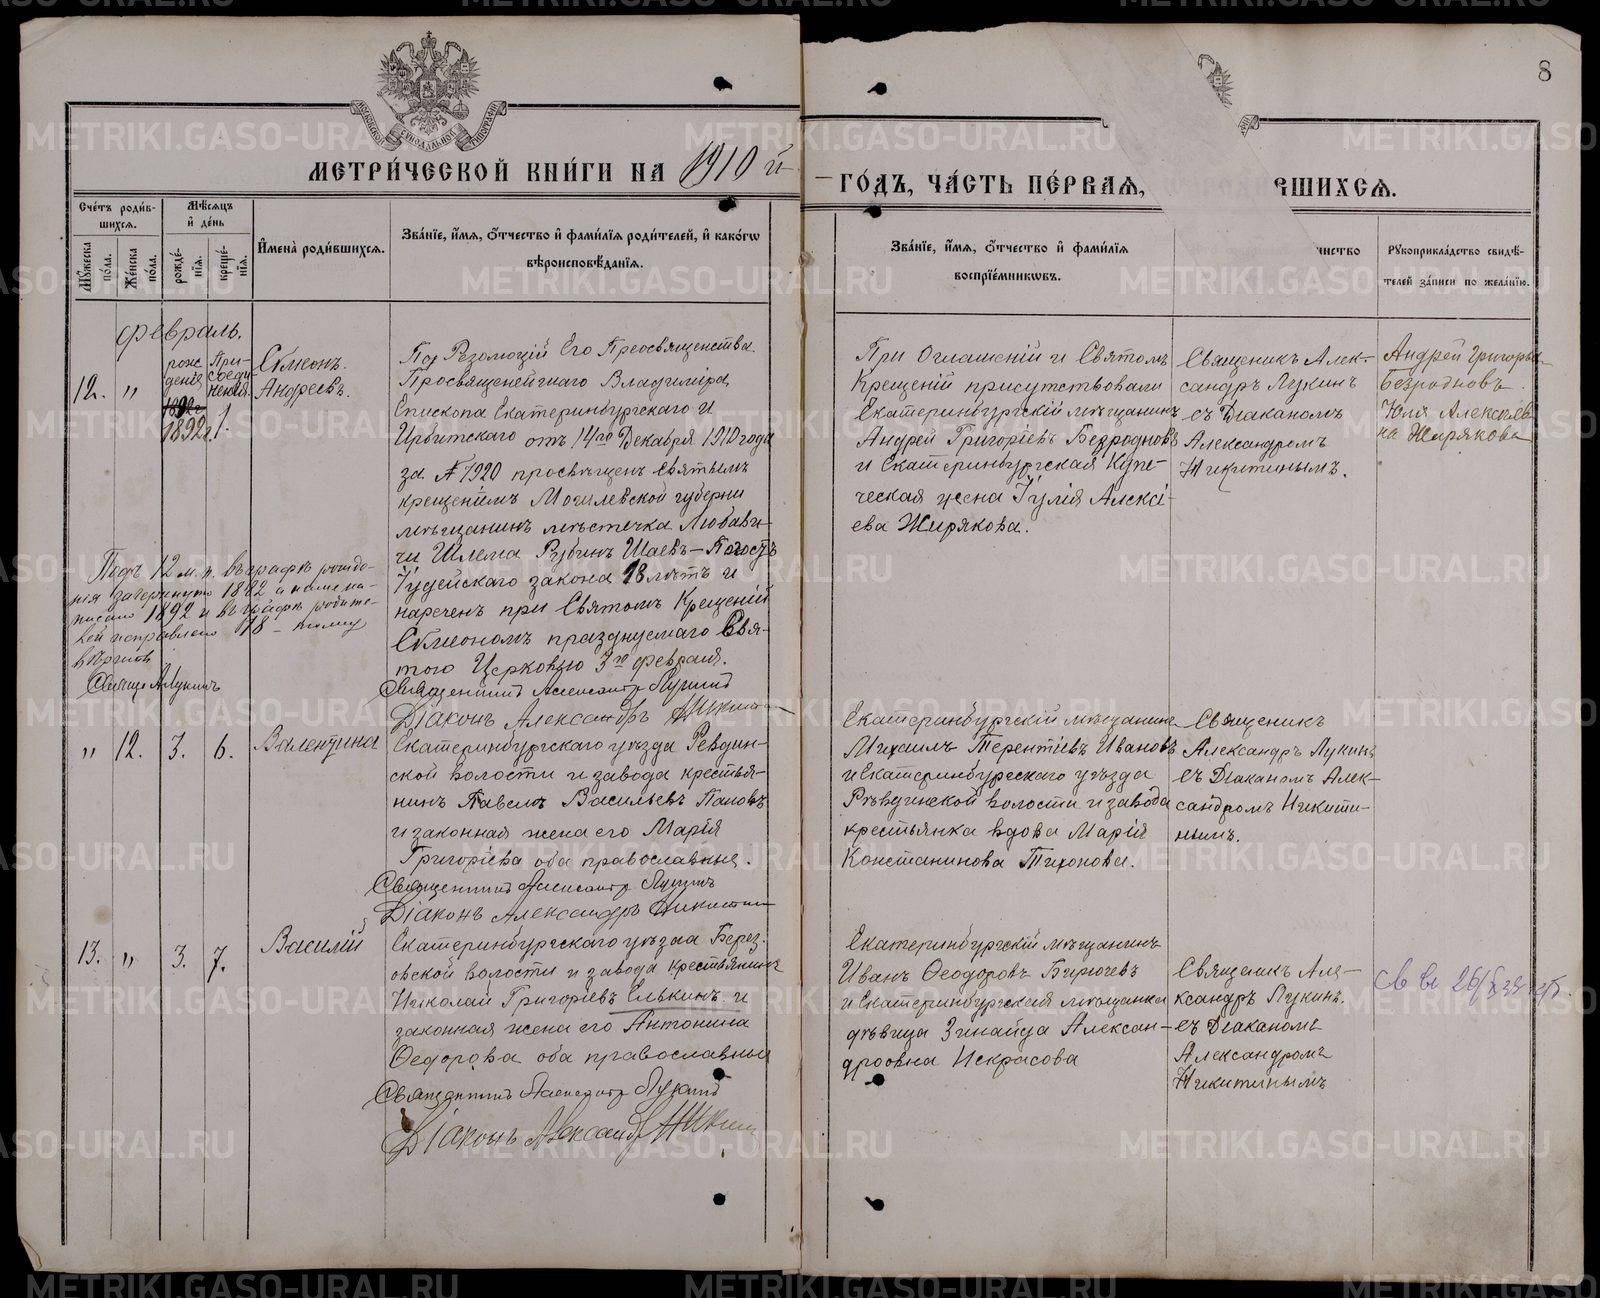 МОСКОВСКОЙ СѴНОДАЛЬНОЙ ТИПОГРАФІИ
8
МЕТРИ́ЧЕСКОЙ КНИ́ГИ НА 1910 й
ГО́ДЪ, ЧА́СТЬ ПЕ́РВАѦ, ВШИХСѦ.
Сче́тъ роди́в-
шихсѧ.
Мѣ́сѧцъ
и҆ де́нь
Мꙋ́жеска по́ла.
Же́нска по́ла.
рожде́-
нїѧ.
креще́-
нїѧ.
И҆мена̀ роди́вшихсѧ.
Зва́нїе, и҆́мѧ, ѻ҆́тчество и҆ фами́лїѧ роди́телей, и҆ како́гѡ
вѣроисповѣ́данїѧ.
Зва́нїе, и҆́мѧ, ѻ҆́тчество и҆ фами́лїѧ
воспрїе́мникѡвъ.
инство
Рꙋкоприкла́дство свидѣ́-
телей за́писи по жела́нїю.
Февраль.
12. " рож
денія
1892 г.
При-
соеди
ненія
1.
Сѵмеонъ.
Андреевъ.
По Резолюціи Его Преосвященства
Просвященейшаго Владиміра,
Епископа Екатеринбургскаго и
Ирбитскаго отъ 14го Декабря 1910 года
за № 7920 просвѣщенъ святымъ
крещеніемъ Могилевской губерни
мѣщанинъ мѣстечка Любави-
чи Шлема Рубинъ Шаевъ-Погостъ
Іудейскаго закона 18 лѣтъ и
нареченъ при Святомъ Крещеніи
Сѵмеономъ празднуемаго Свя-
тою Церковью 3го февраля.
Священникъ Александръ Лукинъ
Діаконъ Александръ Никитин
Подъ 12 м. п. въ графѣ рожде-
нія зачеркнуто 1882 а
писано 1892 и въ графѣ родите-
лей исправлено 18 - тому
вѣрно
Священ А Лукинъ
При Оглашеніи и Святомъ
Крещеніи присутствовали
Екатеринбургскій мѣщанинъ
Андрей Григоріевъ Безродновъ
и Екатеринбургская Купе-
ческая жена Іулія Алексі-
ева Жирякова.
Священикъ Алек-
сандръ Лукинъ
съ Діаканомъ
Александромъ
Никитинымъ.
Андрей Григорье
Безродновъ.
Юля Алексѣев
на Жирякова
" 12. 3. 6. Валентина
Екатеринбургскаго уѣзда Ревдин-
ской волости и завода крестья-
нинъ Павелъ Васильевъ Паповъ
и законная жена его Марія
Григоріева оба православные.
Священникъ Александръ Лукинъ
Діаконъ Александръ Никитин
Екатеранбургскій мѣщанинъ
Михаилъ Терентіевъ Ивановъ
и Екатеринбурескаго уѣзда
Рѣвдинской волости и завода
крестьянка вдова Марія
Констанинова Тихонова.
Священикъ
Александръ Лукинъ
съ Діаканомъ Алек-
сандромъ Никити-
нымъ.
13. " 3. 7. Василій
Екатеринбургскаго уѣзда Берез-
овской волости и завода крестьянинъ
Николай Григоріевъ Елькинъ и
законная жена его Антонина
Ѳедорова оба православныи
Священникъ Александръ Лукинъ
Діаконъ Александръ Никитин
Екатеринбургскій мѣщанинъ
Иванъ Ѳеодоровъ Бирючевъ
и Екатеринбургская мѣщанка
дѣвица Зинаида Алексан-
дровна Некрасова
Священикъ Але-
ксандръ Лукинъ.
съ Діаканомъ
Александромъ
Никитинымъ
METRIKI.GASO-URAL.RU